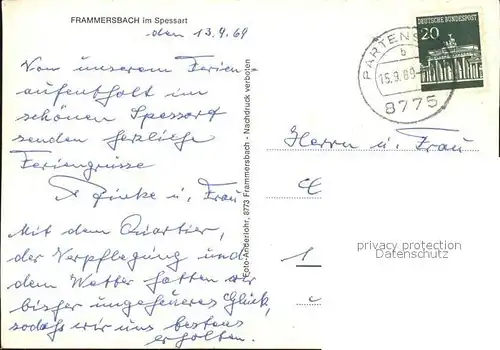 FRAMMERSBACH im Spessart
den 13.9.69
Von unserem Ferien-
aufenthalt im
schönen Spessart
senden herzliche
Feriengrüsse
u. Frau
Mit dem Quartier,
der Verpflegung und
dem Wetter hatten wir
bisher ungeheueres Glück,
sodass wir uns bestens
erholten.
Foto-Anderlohr, 8773 Frammersbach - Nachdruck verboten
PARTENS
b
15.9.69
8775
DEUTSCHE BUNDESPOST
20
Herrn u. Frau
privacy protection
Datenschutz